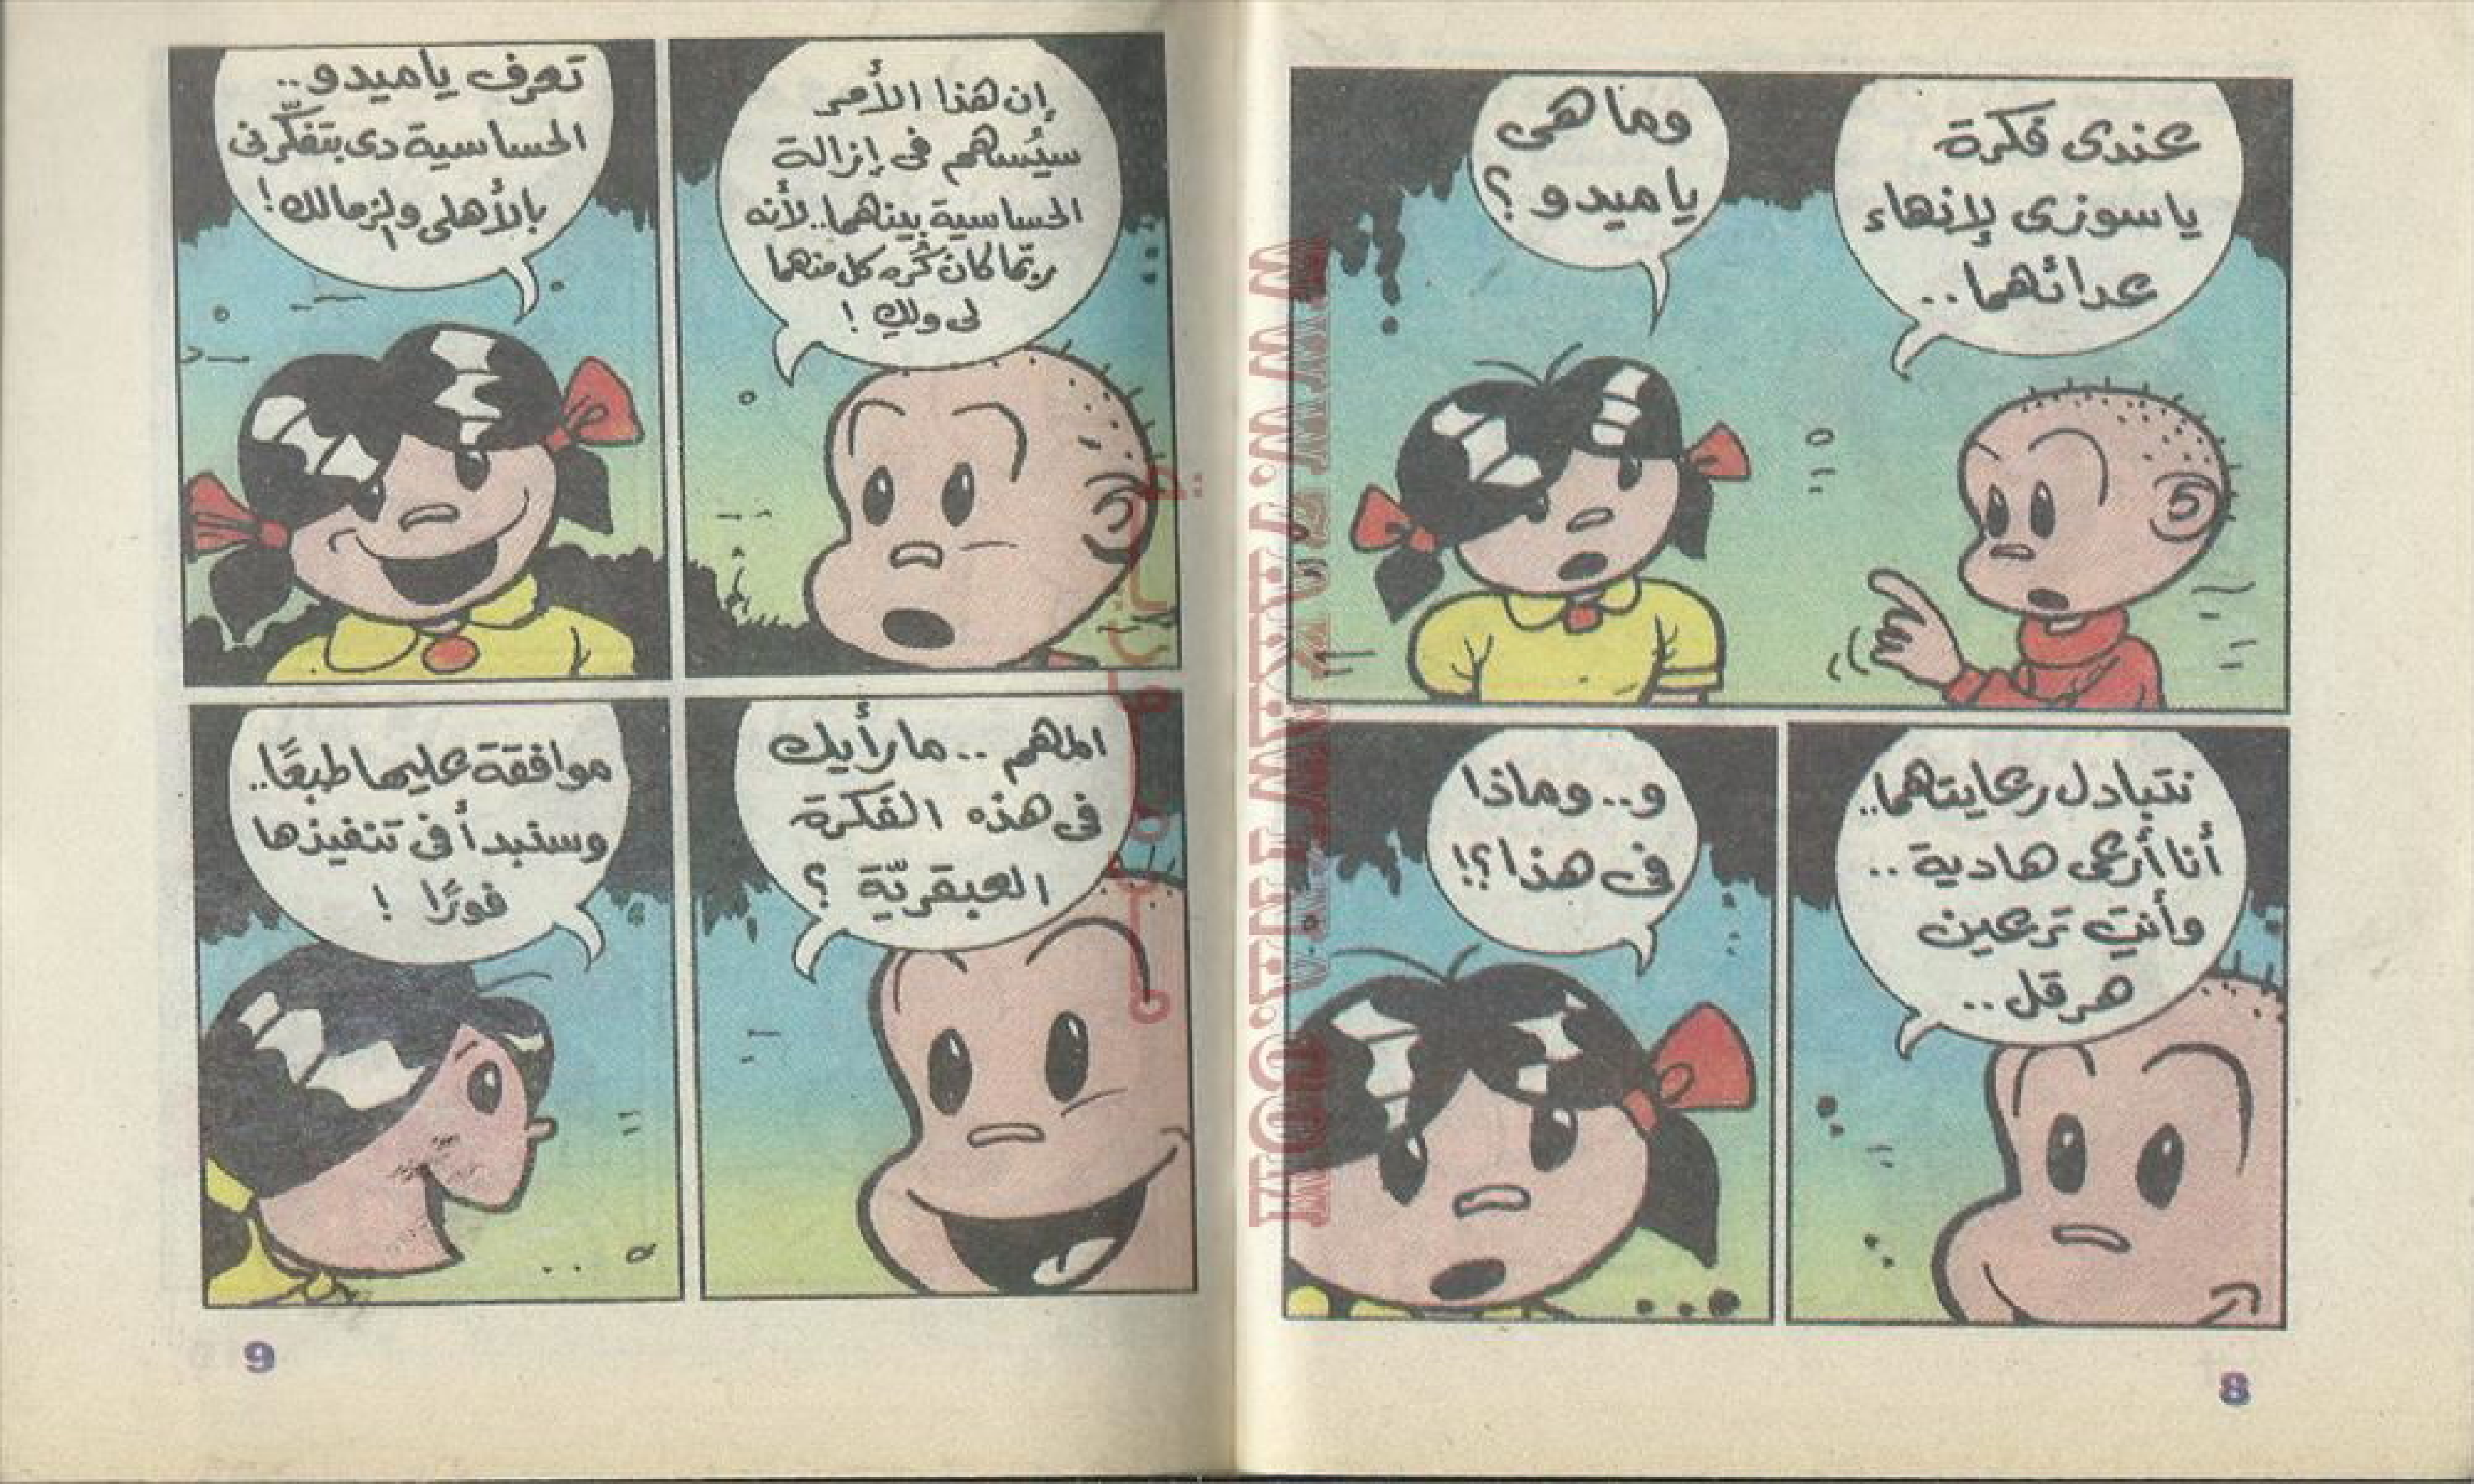 عندى فكرة
ياسوزى لإنهاء
عدائهما..
وما هى
ياميدو؟
نتبادل رعايتهما..
أنا أرعى هادية..
وأنتِ ترعين
هرقل..
و.. وماذا
فى هذا؟!
8
إن هذا الأمر
سيُسهم فى إزالة
الحساسية بينهما.. لأنه
ربّما كان كُره كل منهما
لى ولكِ!
تعرف ياميدو..
الحساسية دى بتفكّرنى
بالأهلى والزمالك!
المهم.. ما رأيك
فى هذه الفكرة
العبقريّة؟
موافقة عليها طبعًا..
وسنبدأ فى تنفيذها
فورًا!
9